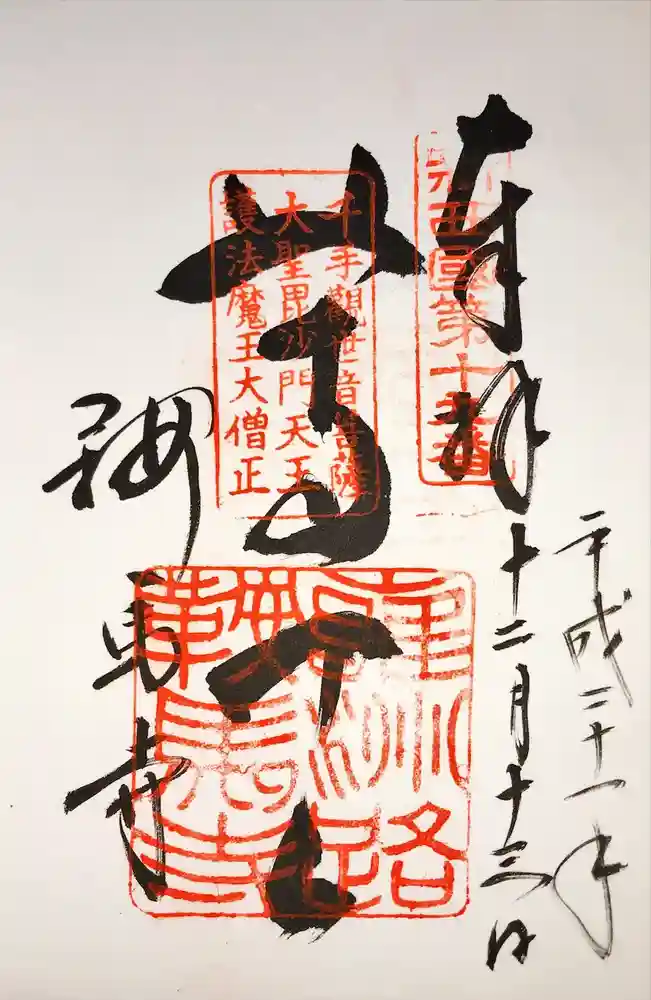 平成二十一年
十二月十三日
奉拝
新西國第十九番
千手觀世音菩薩
大聖毘沙門天王
護法魔王大僧正
州路
鞍馬寺
鞍馬寺